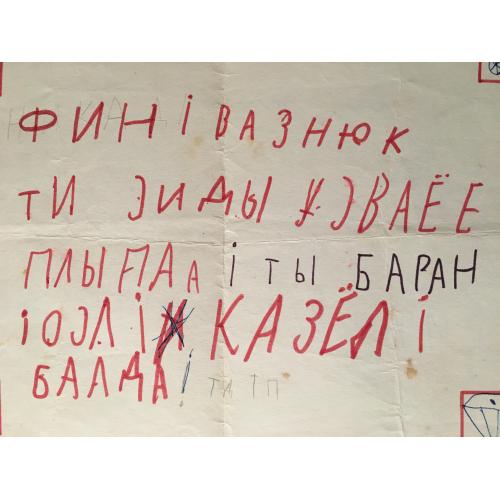 ФИН і ВАЗНЮК
ТИ ЭИДЫ УЭВАЁЕ
ПЛЫПАА і ТЫ БАРАН
іОЭЛі КАЗЁЛі
БАЛДАі ТАТП